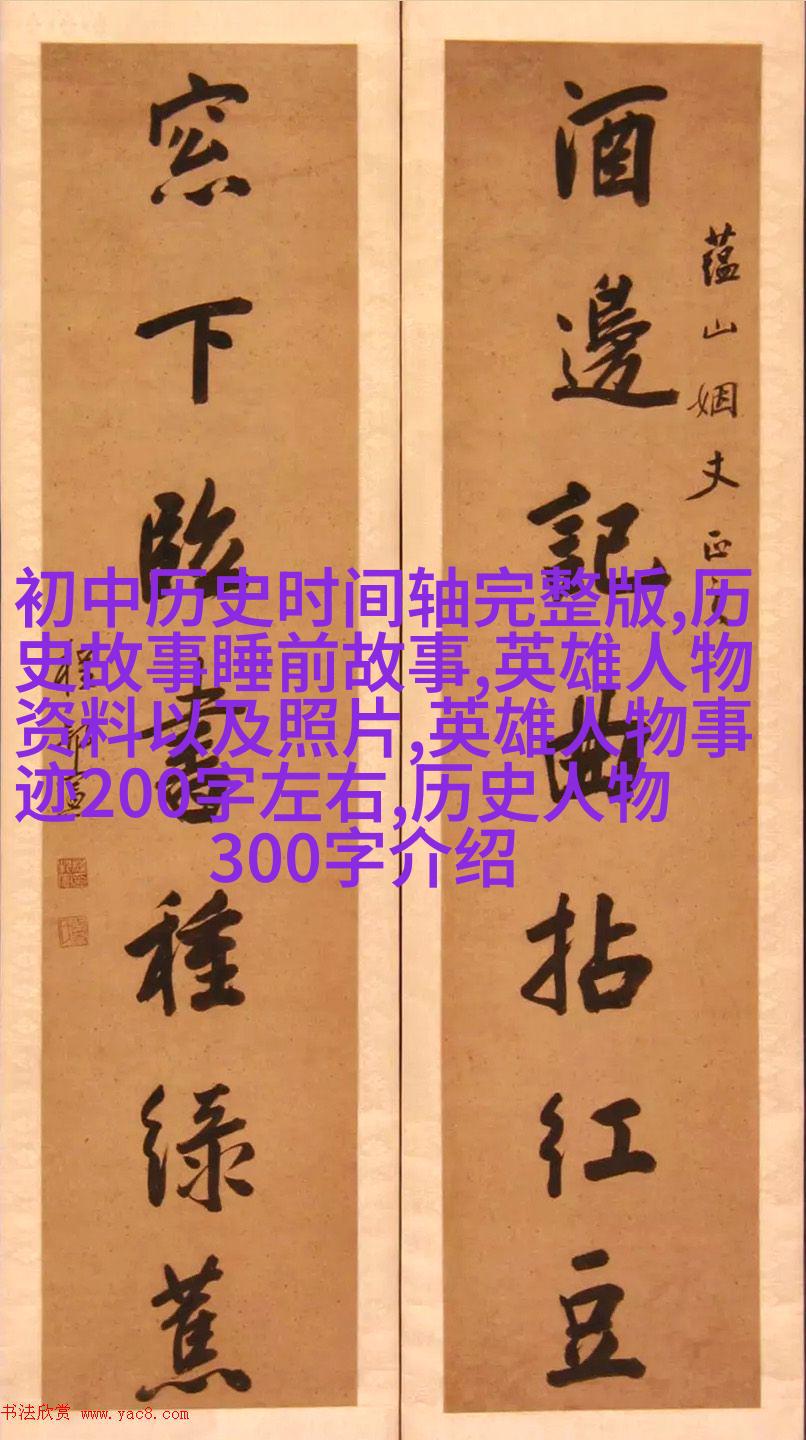 酒邊記曲拈紅豆
蕴山姻丈正
窓下臨書種綠蕉
初中历史时间轴完整版,历
史故事睡前故事,英雄人物
资料以及照片,英雄人物事
迹200字左右,历史人物
300字介绍
书法欣赏 www.yac8.com